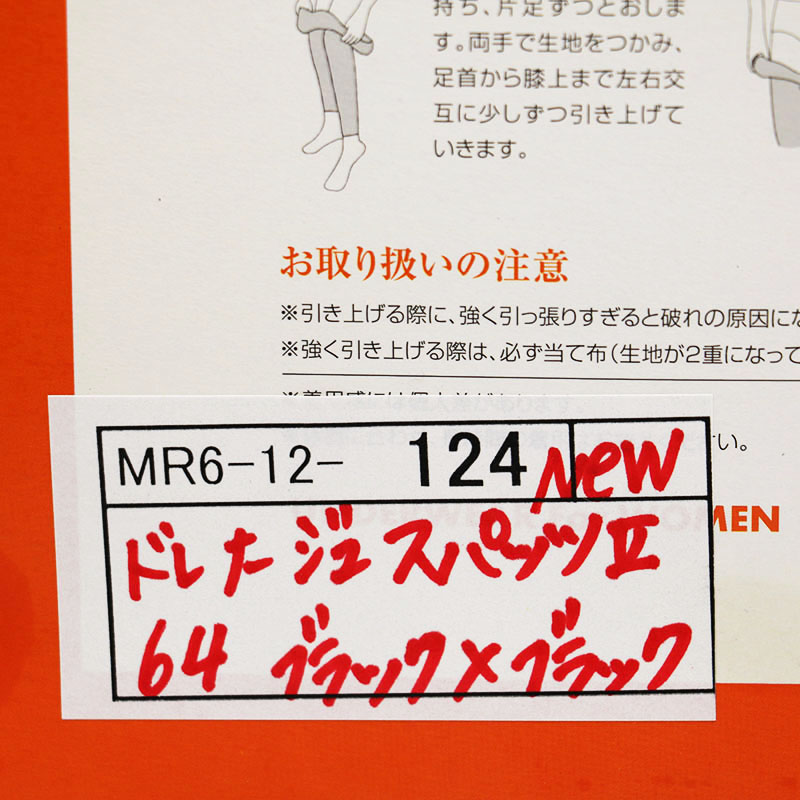 持ち、片足ずつとおしま
す。両手で生地をつかみ、
足首から膝上まで左右交
互に少しずつ引き上げて
いきます。
お取り扱いの注意
※引き上げる際に、強く引っ張りすぎると破れの原因にな
※強く引き上げる際は、必ず当て布(生地が2重になって
※着用感には個人差があります
い。
MEN
MR6-12- 124 New
ドレナージュスパッツII
64 ブラック×ブラック